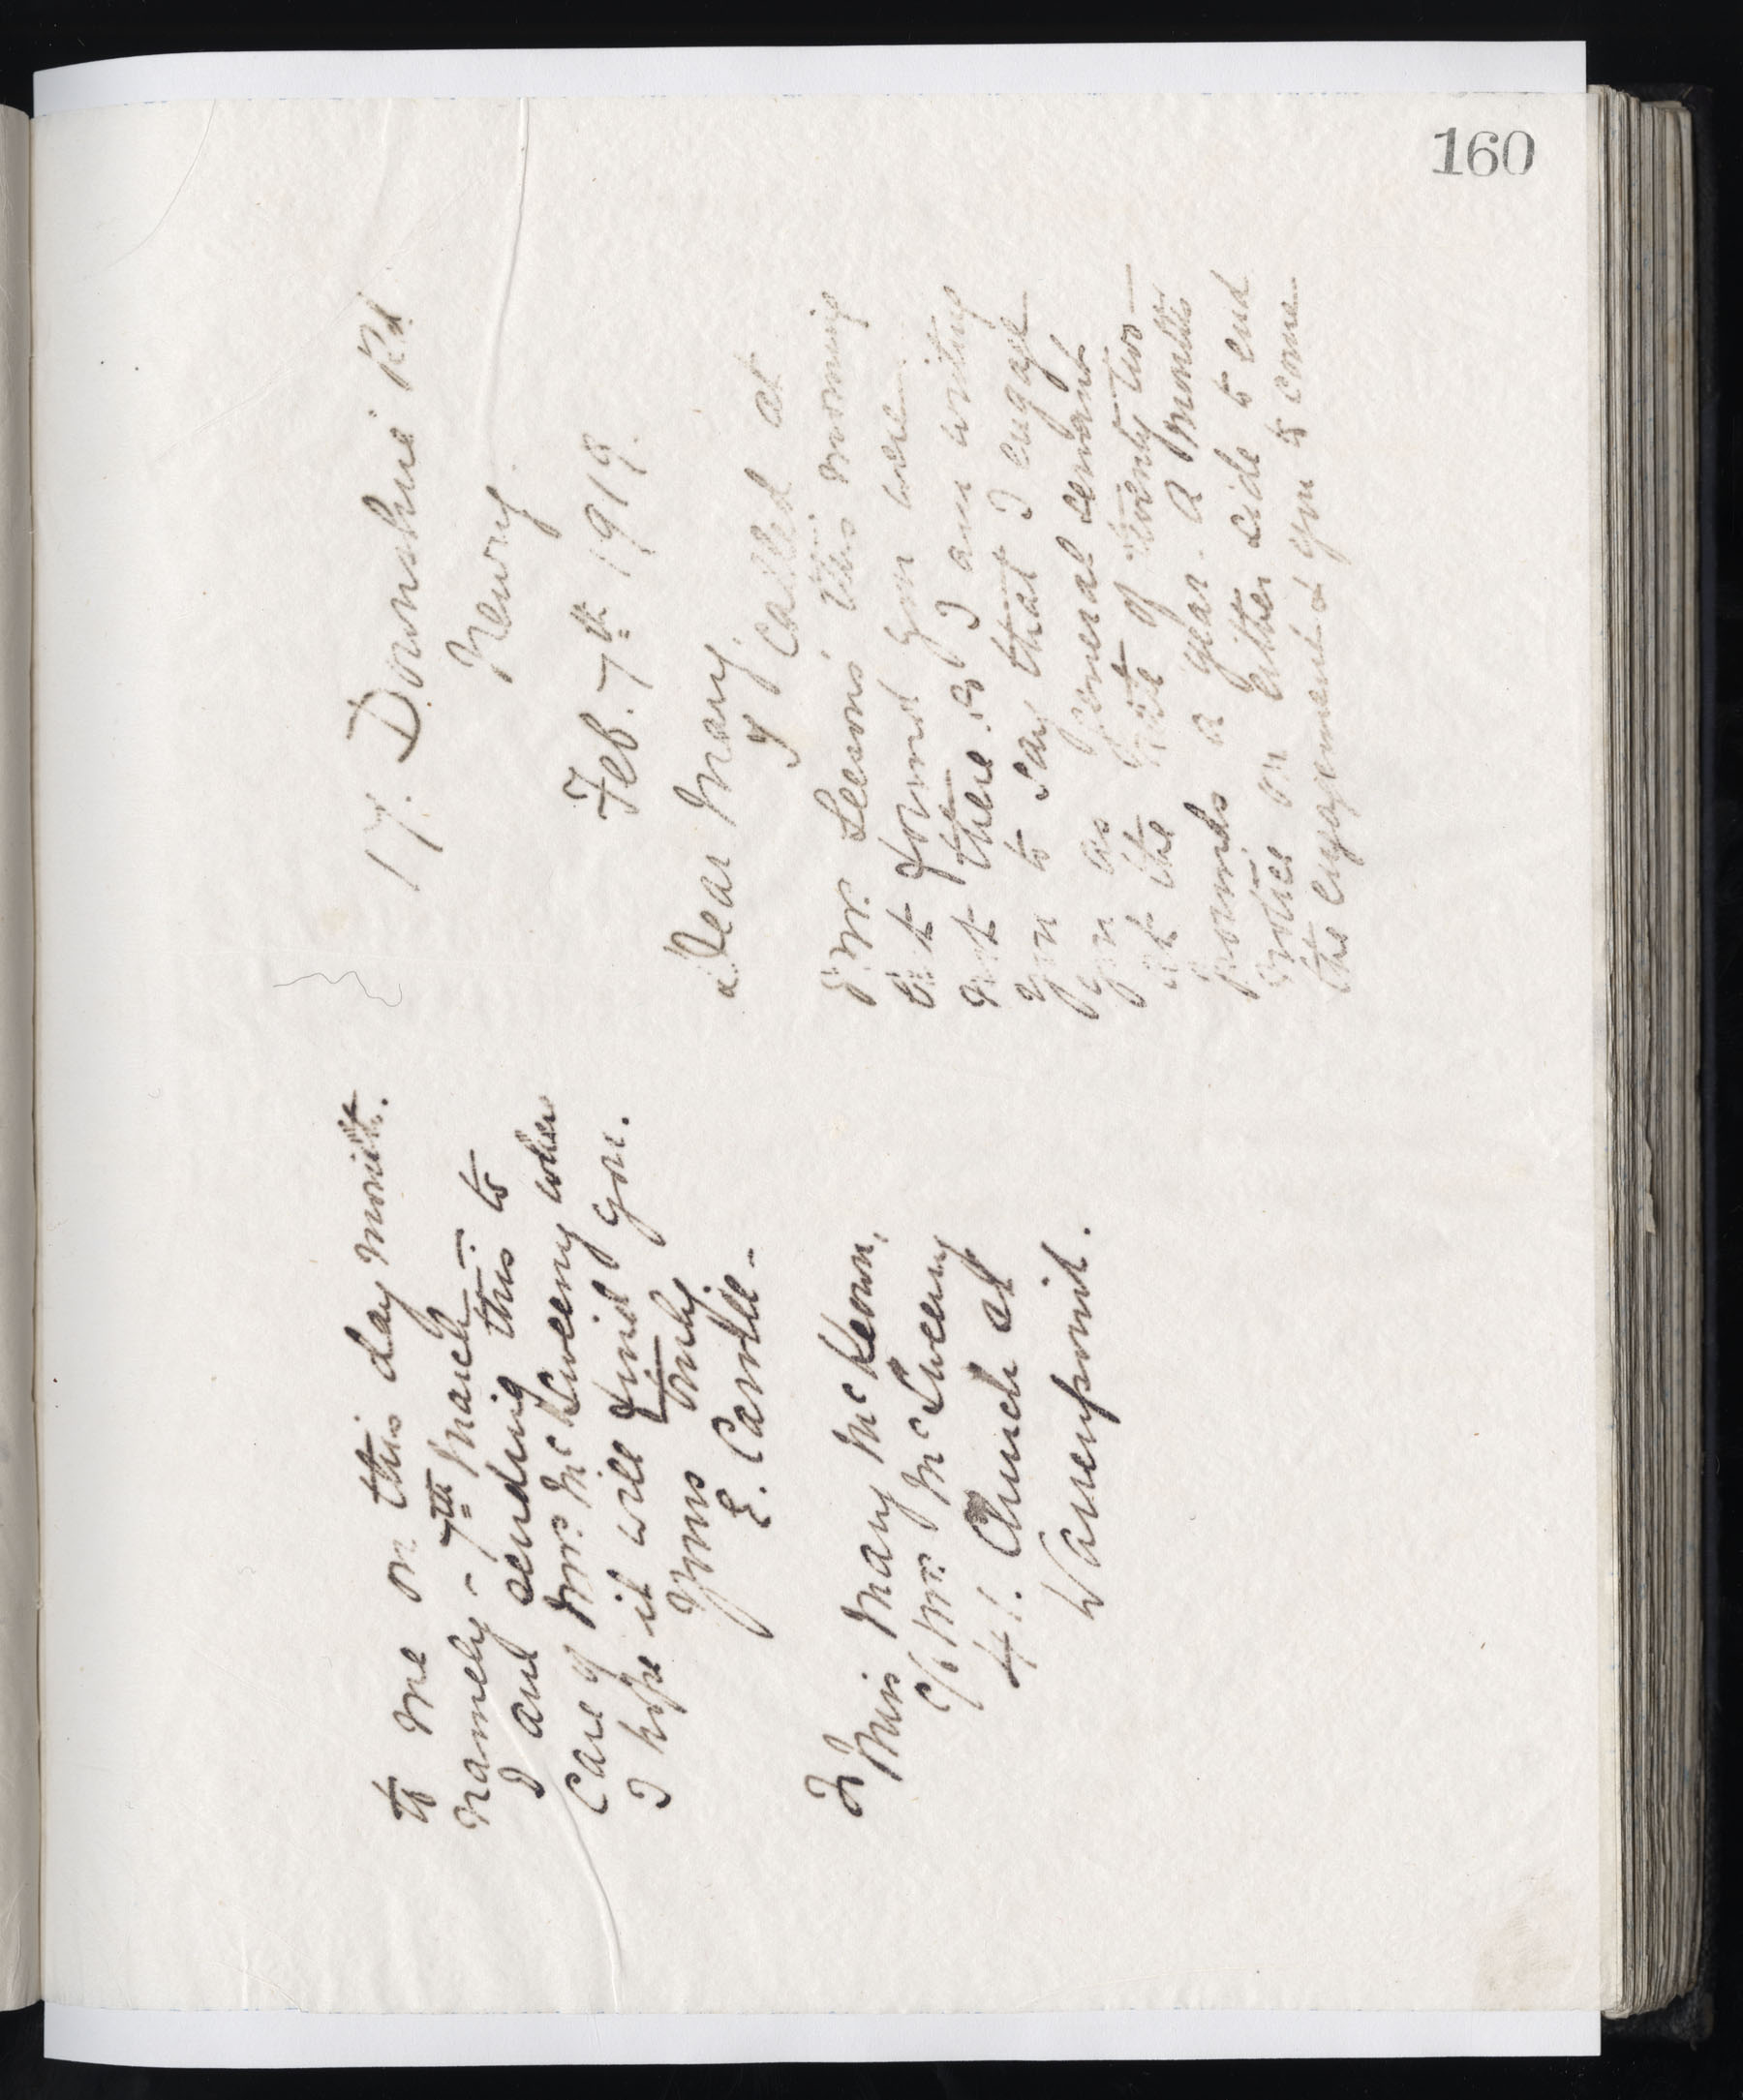 160
17. Downshire Rd
Newry
Feb. 7th 1919.
Dear Mary,
I called at
Mr. Leesons' this morning
but found you were
not there. So I am writing
you to say that I engage
you as general servant
at the rate of twenty two
pounds a year. A month's
notice on either side to end
the engagement & you to come
to me on this day month.
namely - 7th March.
I am sending this to
Care of Mrs. McSweeny where
I hope it will find you.
Yours truly
E. Carvill -
To
Miss Mary McKeown,
c/o Mrs. McSweeny
41. Church St
Warrenpoint.